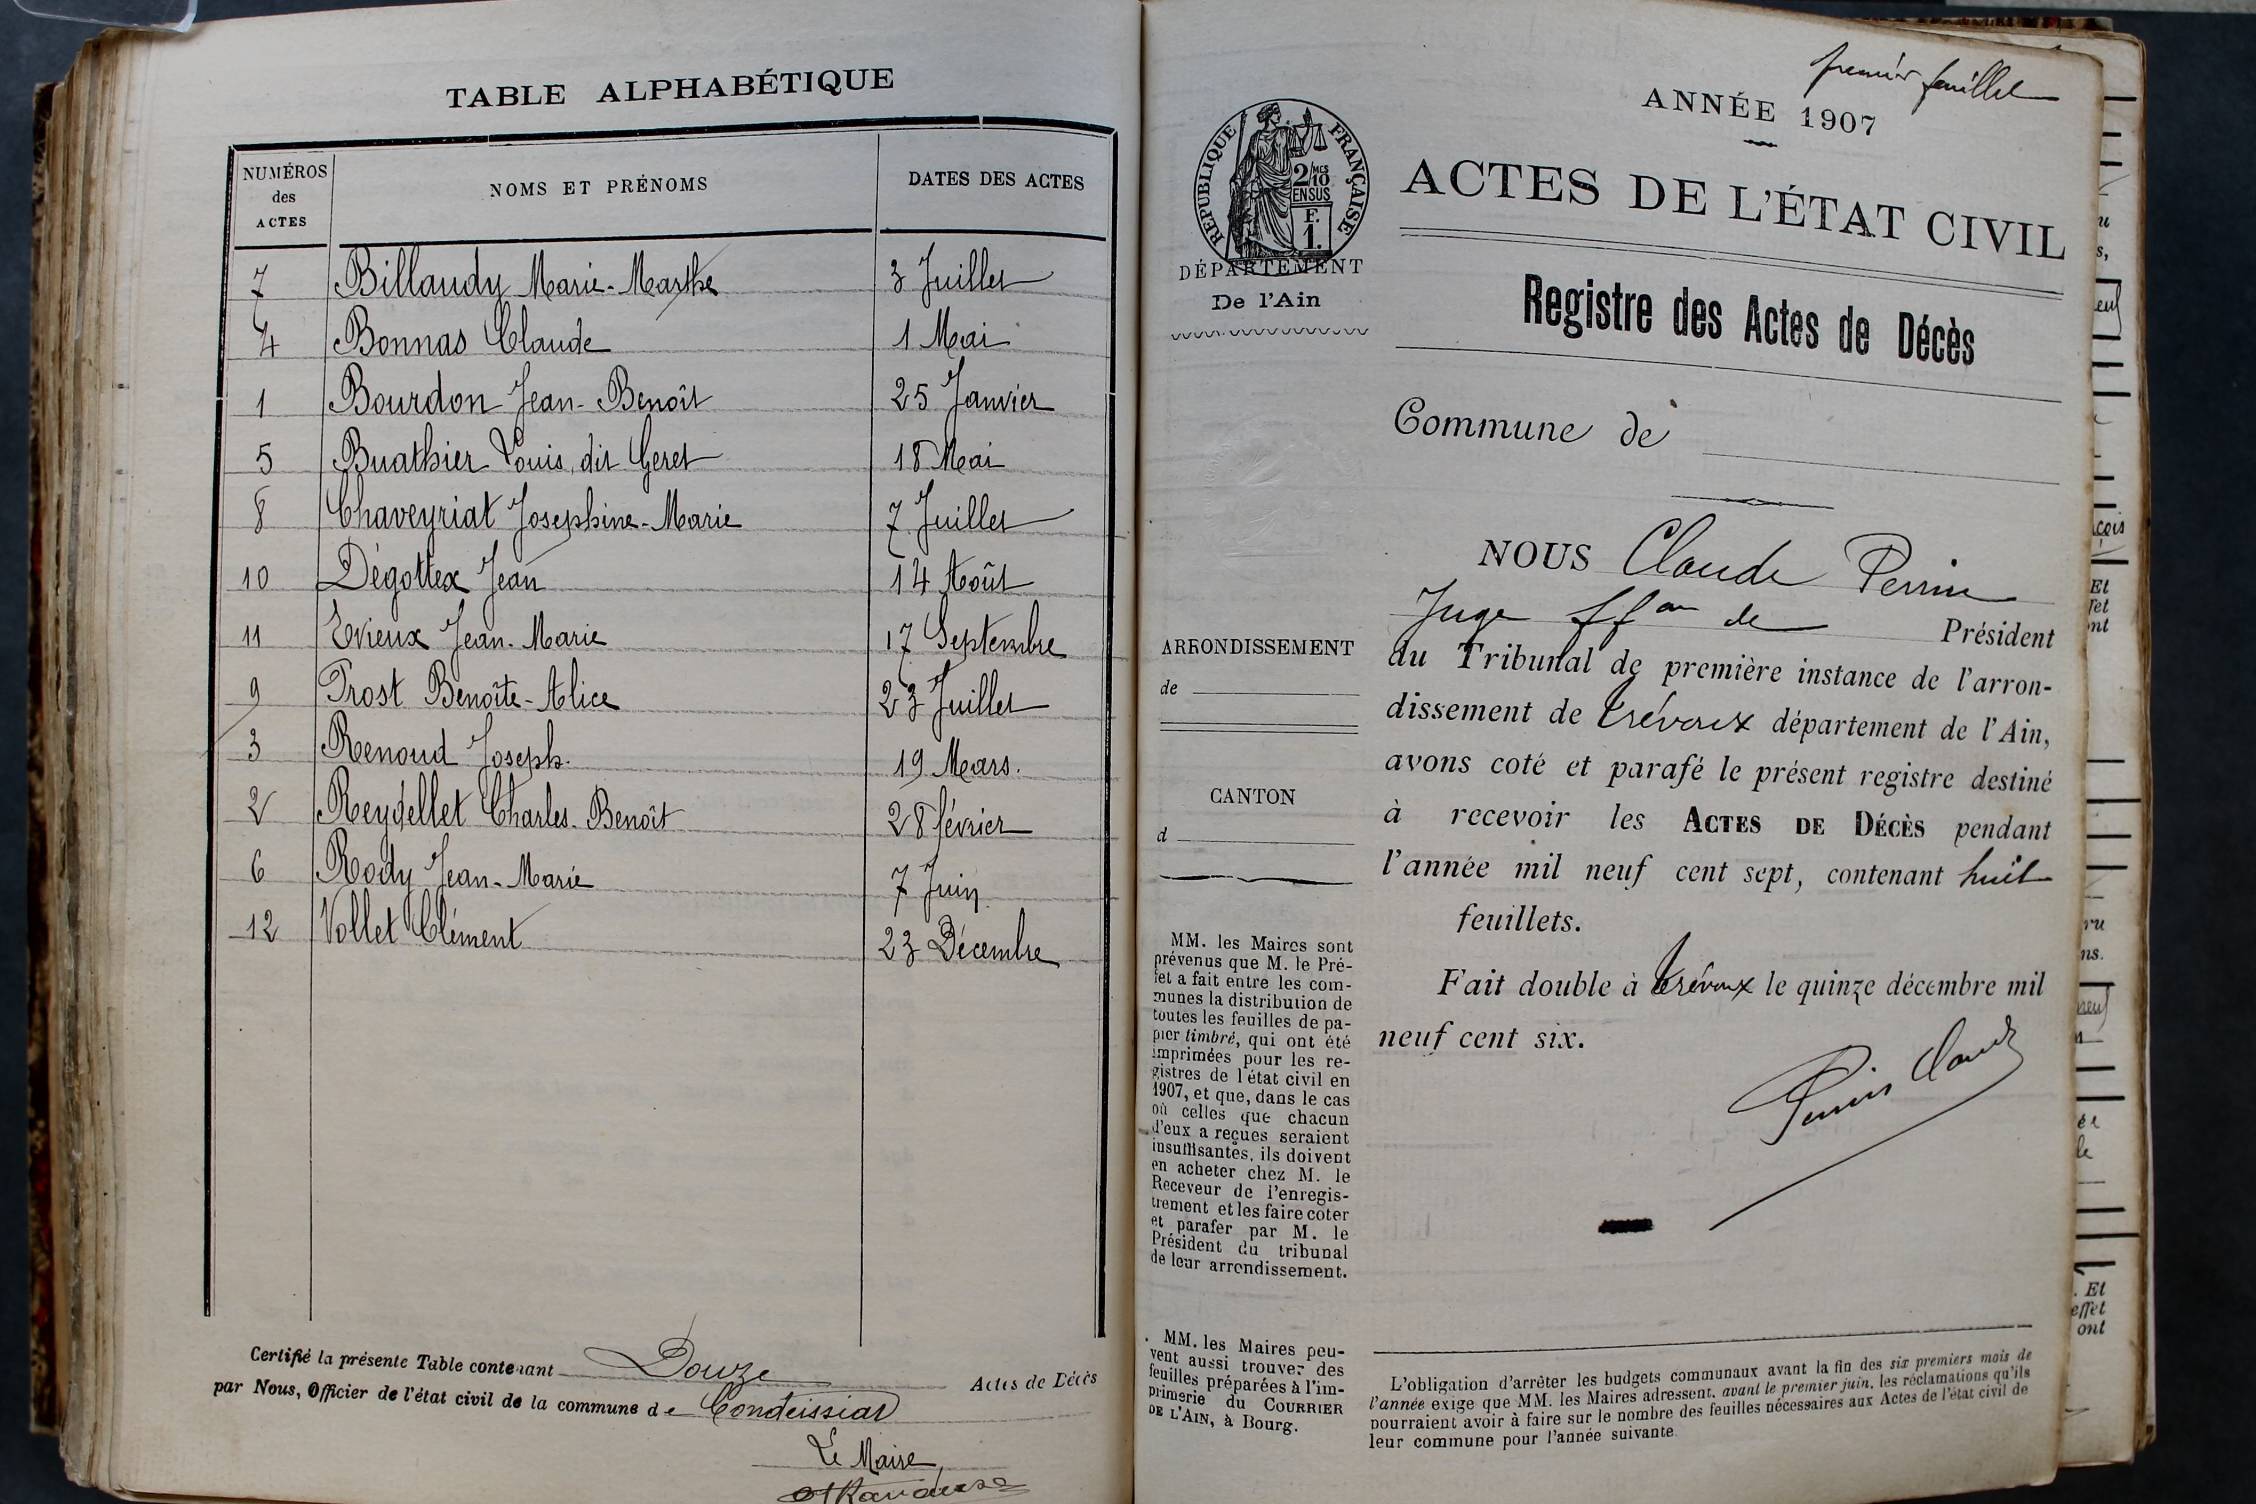 TABLE ALPHABÉTIQUE
NUMÉROS des ACTES NOMS ET PRÉNOMS DATES DES ACTES
7 Billaudy Marie-Marthe 3 Juillet
4 Bonnas Claude 1 Mai
1 Bourdon Jean-Benoît 25 Janvier
5 Buathier Louis, dit Geret 18 Mai
8 Chaveyriat Josephine-Marie 7 Juillet
10 Dégottex Jean 14 Août
11 Evieux Jean-Marie 17 Septembre
9 Prost Benoîte-Alice 23 Juillet
3 Renoud Joseph. 19 Mars.
2 Reydellet Charles-Benoît 28 février
6 Rody Jean-Marie 7 Juin
12 Vollet Clément 23 Décembre
Certifié la présente Table contenant Douze Actes de Décès
par Nous, Officier de l'état civil de la commune de Condeissiat
Le Maire
premier feuillet
ANNÉE 1907
RÉPUBLIQUE FRANÇAISE
2/10 MES
EN SUS
F.
1.
DÉPARTEMENT
De l'Ain
ACTES DE L'ÉTAT CIVIL
Registre des Actes de Décès
Commune de
NOUS Claude Perrin
Juge ffon de Président
du Tribunal de première instance de l'arron-
dissement de Trévoux département de l'Ain,
avons coté et parafé le présent registre destiné
à recevoir les ACTES DE DÉCÈS pendant
l'année mil neuf cent sept, contenant huit
feuillets.
Fait double à Trévoux le quinze décembre mil
neuf cent six.
Perrin Claude
ARRONDISSEMENT
de
CANTON
d
MM. les Maires sont
prévenus que M. le Pré-
fet a fait entre les com-
munes la distribution de
toutes les feuilles de pa-
pier timbré, qui ont été
imprimées pour les re-
gistres de l'état civil en
1907, et que, dans le cas
où celles que chacun
d'eux a reçues seraient
insuffisantes, ils doivent
en acheter chez M. le
Receveur de l'enregis-
trement et les faire coter
et parafer par M. le
Président du tribunal
de leur arrondissement.
MM. les Maires peu-
vent aussi trouver des
feuilles préparées à l'im-
primerie du COURRIER
DE L'AIN, à Bourg.
L'obligation d'arrêter les budgets communaux avant la fin des six premiers mois de
l'année exige que MM. les Maires adressent, avant le premier juin, les réclamations qu'ils
pourraient avoir à faire sur le nombre des feuilles nécessaires aux Actes de l'état civil de
leur commune pour l'année suivante.